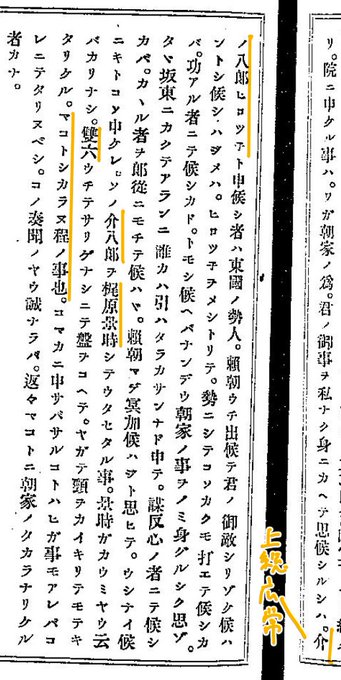 リ。院ニ申ケル事ハ。ワガ朝家ノ爲。君ノ御事ヲ私ナク身ニカヘテ思候シルシハ。介
上総広常
ノ八郎ヒロツ子ト申候シ者ハ東國ノ勢人。賴朝ウチ出候テ君ノ御敵シリゾケ候ハ
ントシ候シハジメハ。ヒロツ子ヲメシトリテ。勢ニシテコソカクモ打エテ候シカ
バ。功アル者ニテ候シカド。トモシ候ヘバナンデウ朝家ノ事ヲノミ身グルシク思ゾ。
タヾ坂東ニカクテアランニ誰カハ引ハタラカサンナド申テ。謀反心ノ者ニテ候シ
カバ。カヽル者ヲ郎從ニモチテ候ハヾ。賴朝マデ冥加候ハジト思ヒテ。ウシナイ候
ニキトコソ申ケレ。ソノ介八郎ヲ梶原景時シテウタセタル事。景時ガカウミヤウ云
バカリナシ。雙六ウチテサリゲナシニテ盤ヲコヘテ。ヤガテ頸ヲカイキリテモテキ
タリケル。マコトシカラヌ程ノ事也。コマカニ申サバサルコトハヒガ事モアレバコ
レニテタリヌベシ。コノ奏聞ノヤウ誠ナラバ。返々マコトニ朝家ノタカラナリケル
者カナ。